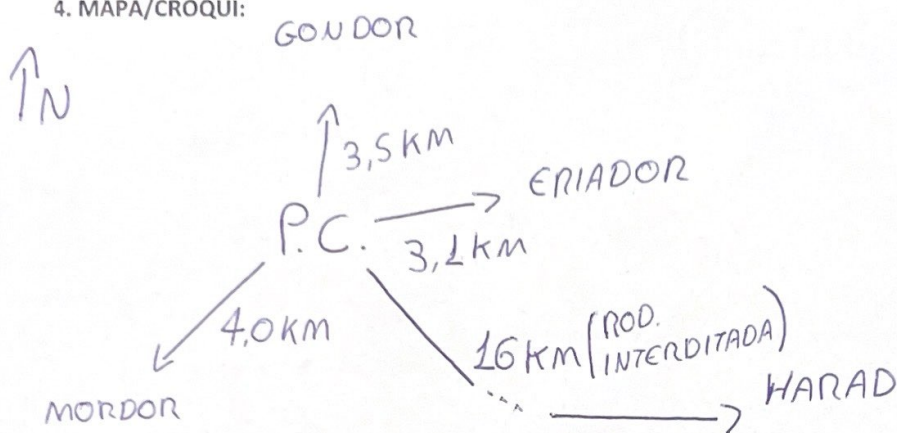 4. MAPA/CROQUI:
GONDOR
N
3,5 KM
ERIADOR
P.C.
3,1 KM
4,0 KM
16 KM (ROD. INTERDITADA)
HARAD
MORDOR